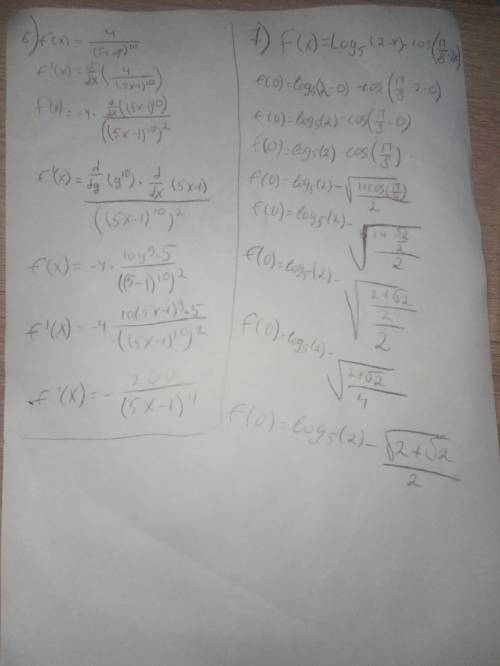 6) f(x) = 4/(5x-1)^10
f'(x) = d/dx (4/(5x-1)^10)
f'(x) = -4 · d/dx((5x-1)^10)/((5x-1)^10)^2
f'(x) = d/dg (g^10) · d/dx (5x-1)/((5x-1)^10)^2
f(x) = -4 · 10g^9·5/((5-1)^10)^2
f'(x) = -4 10(5x-1)^9·5/((5x-1)^10)^2
f'(x) = - 200/(5x-1)^11
7) f(x) = Log5(2-x) - cos(π/8 - 2x)
f(0) = log5(2-0) - cos(π/8 - 2·0)
f(0) = log5(2) - cos(π/8 - 0)
f(0) = log5(2) - cos(π/8)
f(0) = log5(2) - √(1+cos(π/4)/2)
f(0) = log5(2) - √((1+√2/2)/2)
f(0) = log5(2) - √(((2+√2)/2)/2)
f(0) = log5(2) - √((2+√2)/4)
f(0) = log5(2) - √(2+√2)/2